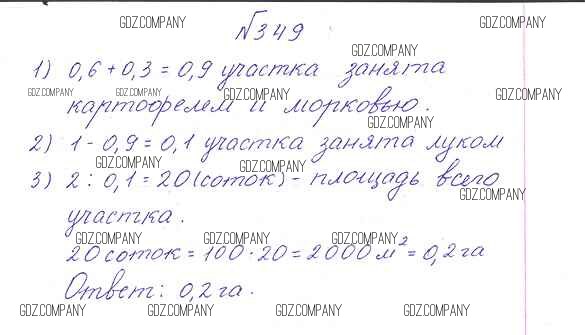 GDZ.COMPANY GDZ.COMPANY
№349
GDZ.COMPANY
1) 0,6 + 0,3 = 0,9 участка занята
GDZ.COMPANY GDZ.COMPANY GDZ.COMPANY GDZ.COMPANY
картофелем и морковью.
GDZ.COMPANY
2) 1 - 0,9 = 0,1 участка занята луком
GDZ.COMPANY GDZ.COMPANY
3) 2 : 0,1 = 20 (соток) - площадь всего
GDZ.COMPANY
участка.
GDZ.COMPANY GDZ.COMPANY GDZ.COMPANY
20 соток = 100 · 20 = 2000 м² = 0,2 га
Ответ: 0,2 га.
GDZ.COMPANY GDZ.COMPANY GDZ.COMPANY GDZ.COMPANY